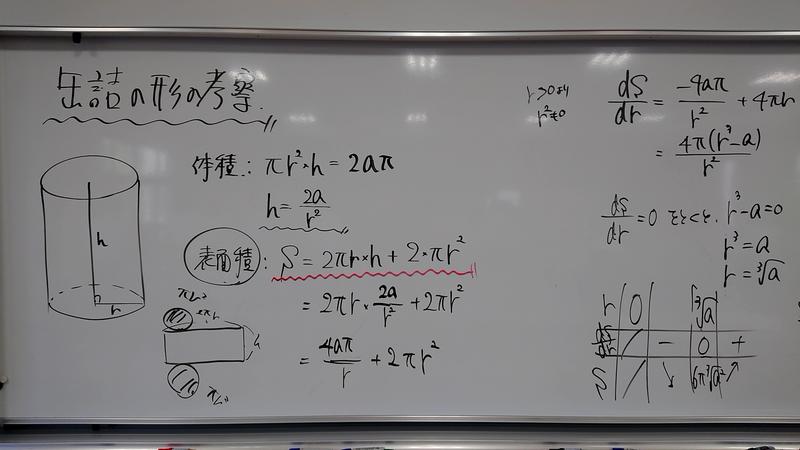 缶詰の形の考察.
体積: πr²×h = 2aπ
h = 2a/r²
表面積: S = 2πr×h + 2×πr²
= 2πr × 2a/r² + 2πr²
= 4aπ/r + 2πr²
h
r
πr²
2πr
h
r>0より
r²≠0
dS/dr = -4aπ/r² + 4πr
= 4π(r³-a)/r²
dS/dr = 0 をとくと, r³-a=0
r³ = a
r = ³√a
r 0 ³√a
dS/dr / - 0 +
S / ↘ 6π³√a² ↗